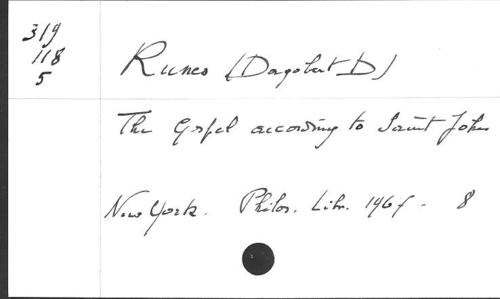 319
118
5
Runes (Dagobert D)
The Gospel according to Saint John
New York. Philos. Libr. 1967. 8